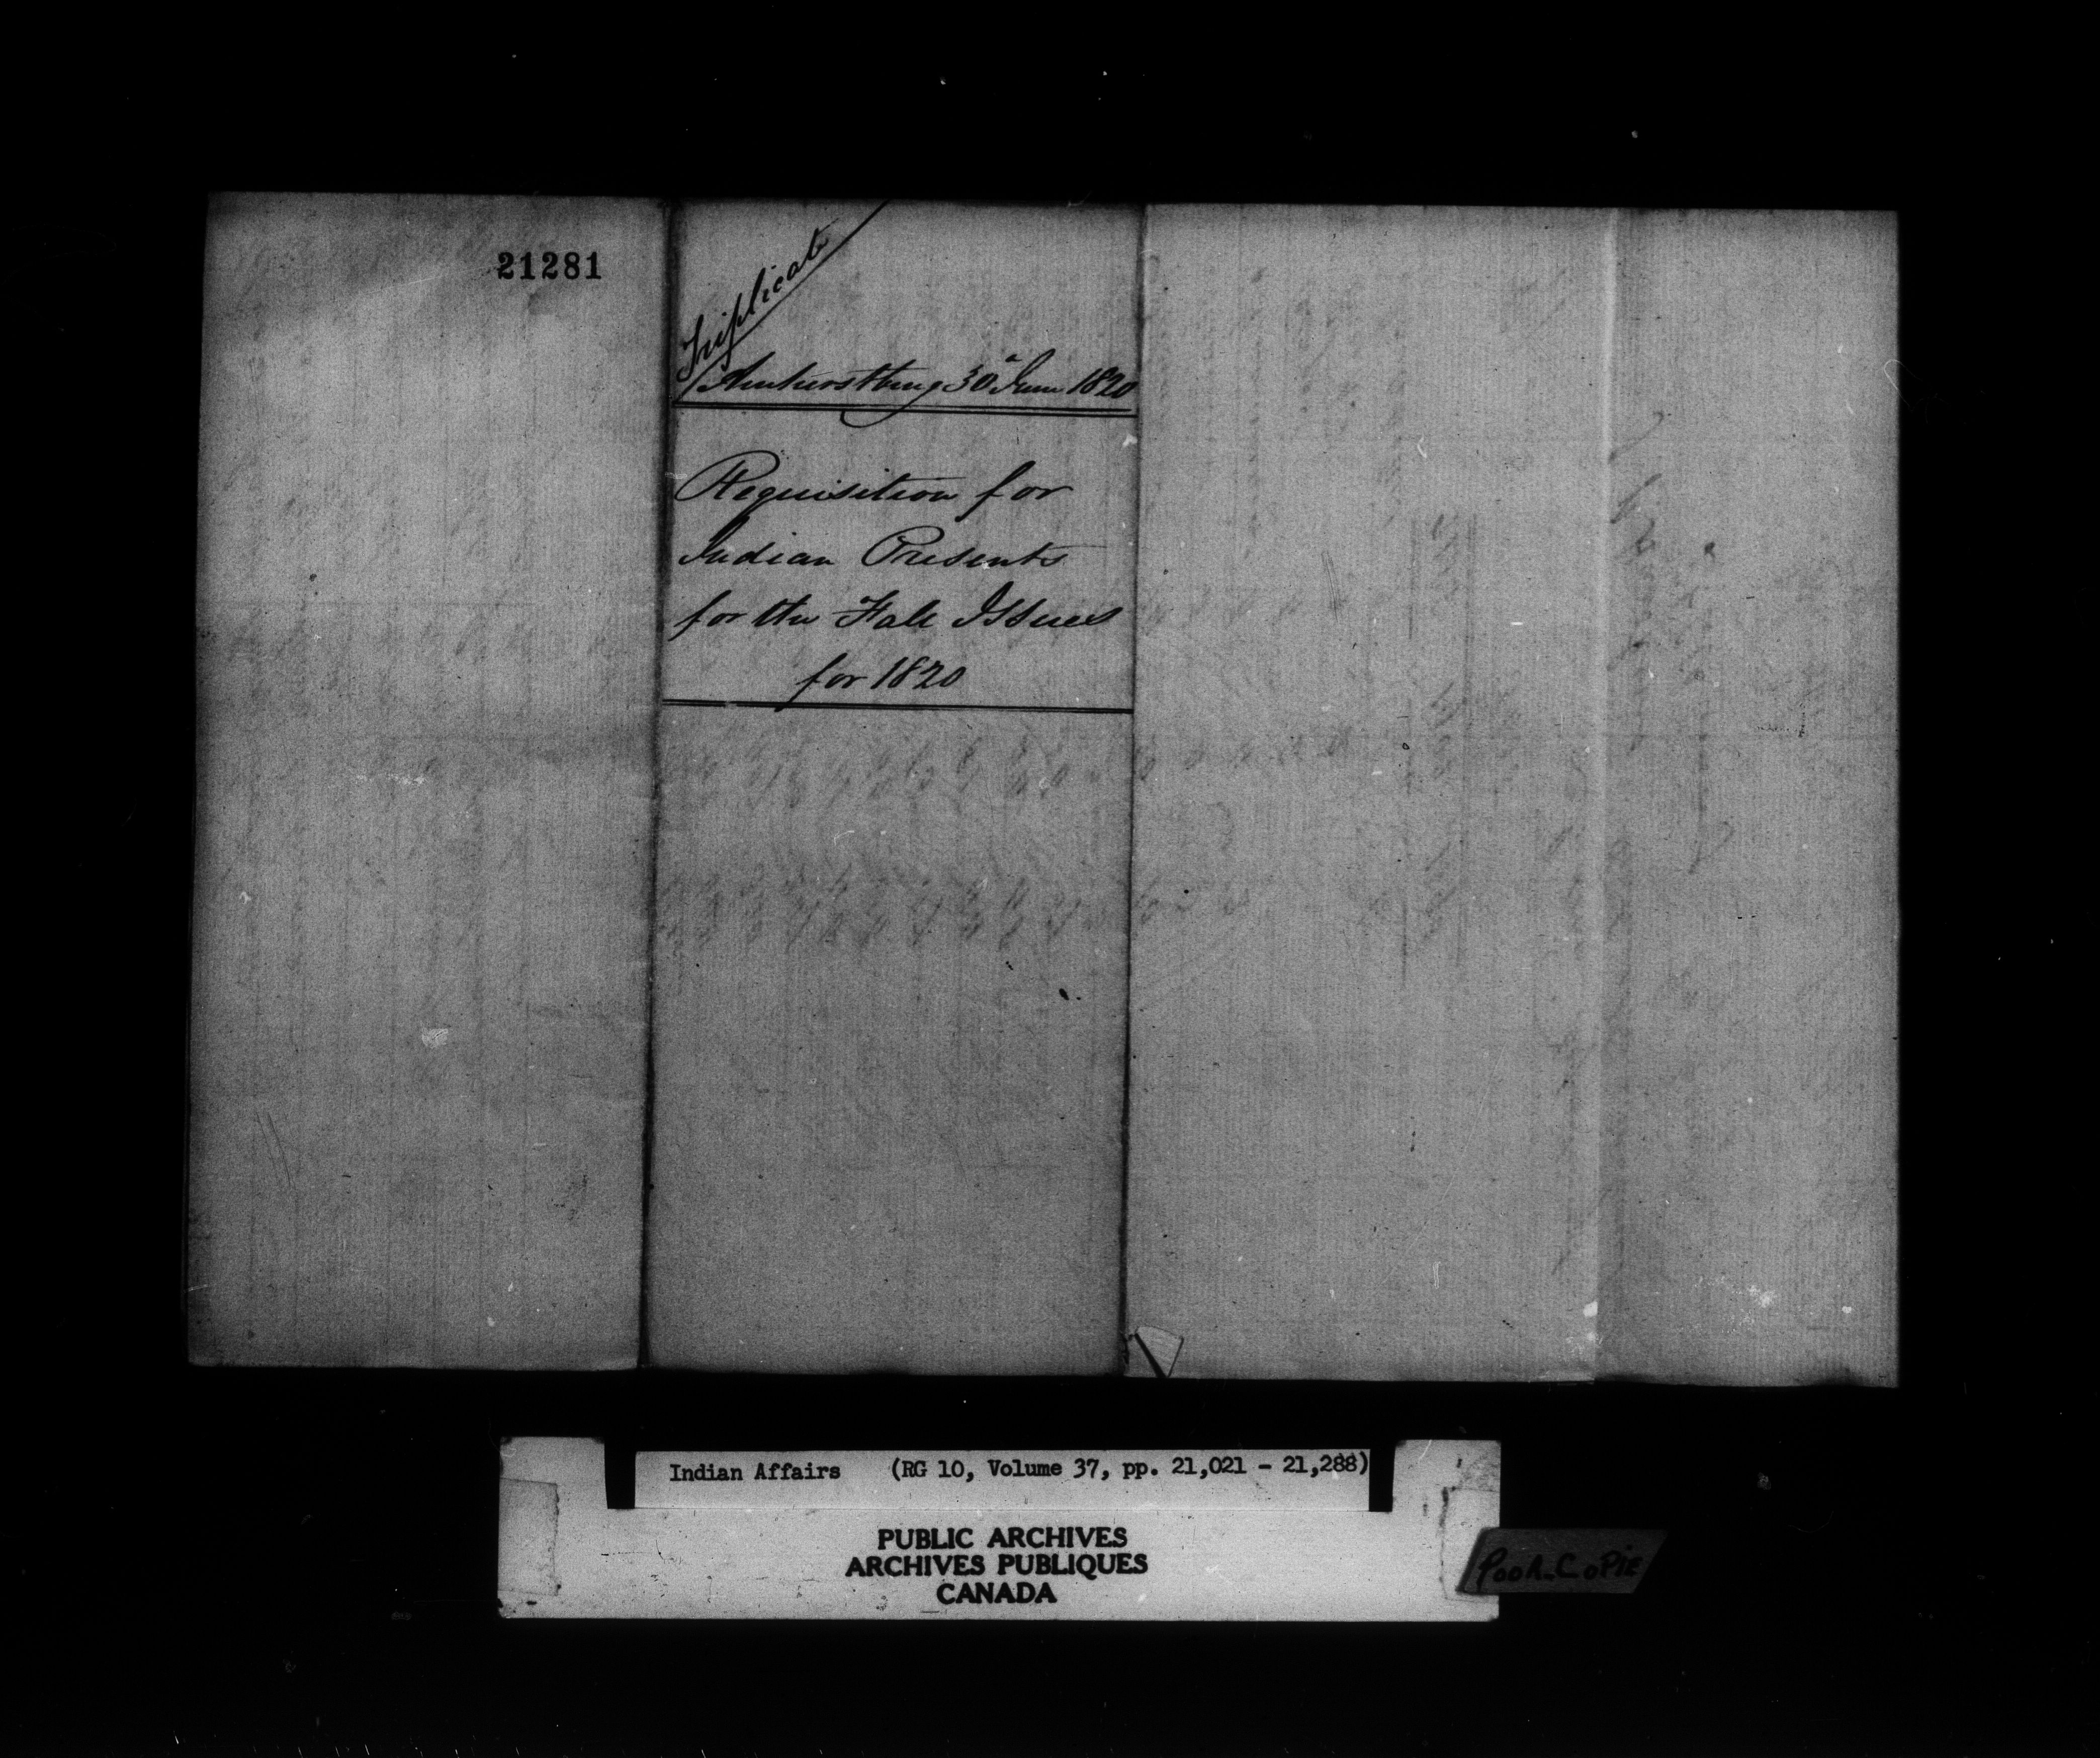 21281
Triplicate
Amherstburg 30th June 1820
Requisition for
Indian Presents
for the Fall Issues
for 1820
Indian Affairs (RG 10, Volume 37, pp. 21,021 - 21,288)
PUBLIC ARCHIVES
ARCHIVES PUBLIQUES
CANADA
POOR-COPIE